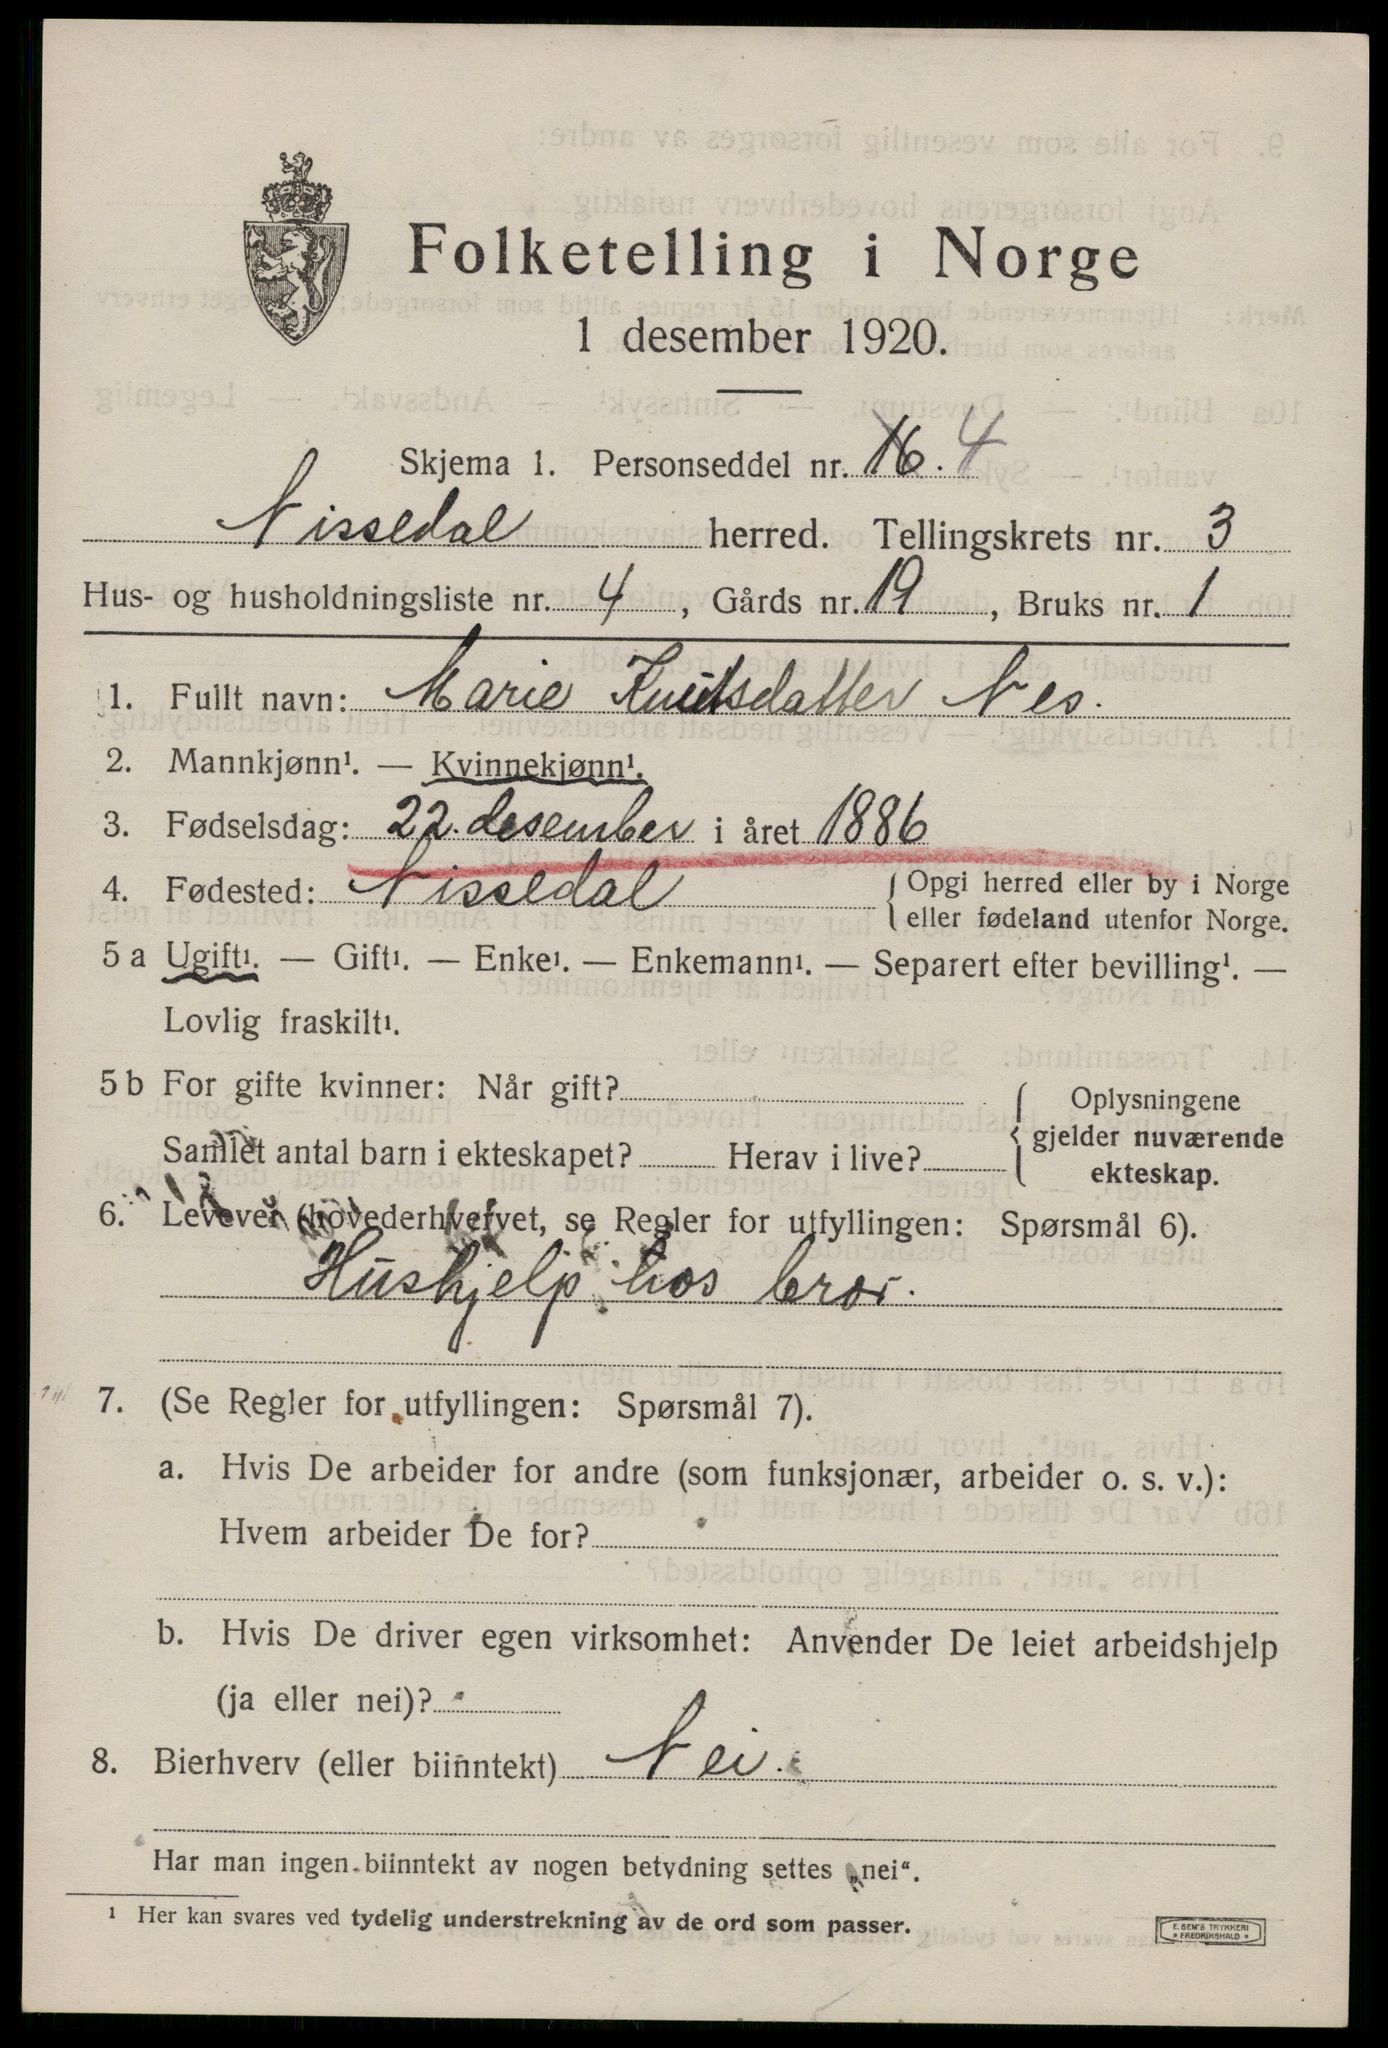 Folketelling i Norge
1 desember 1920.
Skjema 1. Personseddel nr. 16. 4
Nissedal herred. Tellingskrets nr. 3
Hus- og husholdningsliste nr. 4, Gårds nr. 19, Bruks nr. 1
1. Fullt navn: Marie Knutsdatter Nes.
2. Mannkjønn¹. — Kvinnekjønn¹.
3. Fødselsdag: 22. desember i året 1886
4. Fødested: Nissedal { Opgi herred eller by i Norge
eller fødeland utenfor Norge.
5 a Ugift¹. — Gift¹. — Enke¹. — Enkemann¹. — Separert efter bevilling¹. —
Lovlig fraskilt¹.
5 b For gifte kvinner: Når gift? { Oplysningene
gjelder nuværende
ekteskap.
Samlet antal barn i ekteskapet? Herav i live?
6. Levever (hovederhvervet, se Regler for utfyllingen: Spørsmål 6).
Hushjelp hos bror.
7. (Se Regler for utfyllingen: Spørsmål 7).
a. Hvis De arbeider for andre (som funksjonær, arbeider o. s. v.):
Hvem arbeider De for?
b. Hvis De driver egen virksomhet: Anvender De leiet arbeidshjelp
(ja eller nei)?
8. Bierhverv (eller biinntekt) Nei.
Har man ingen biinntekt av nogen betydning settes „nei“.
¹ Her kan svares ved tydelig understrekning av de ord som passer.
E. SEM'S TRYKKERI
FREDRIKSHALD